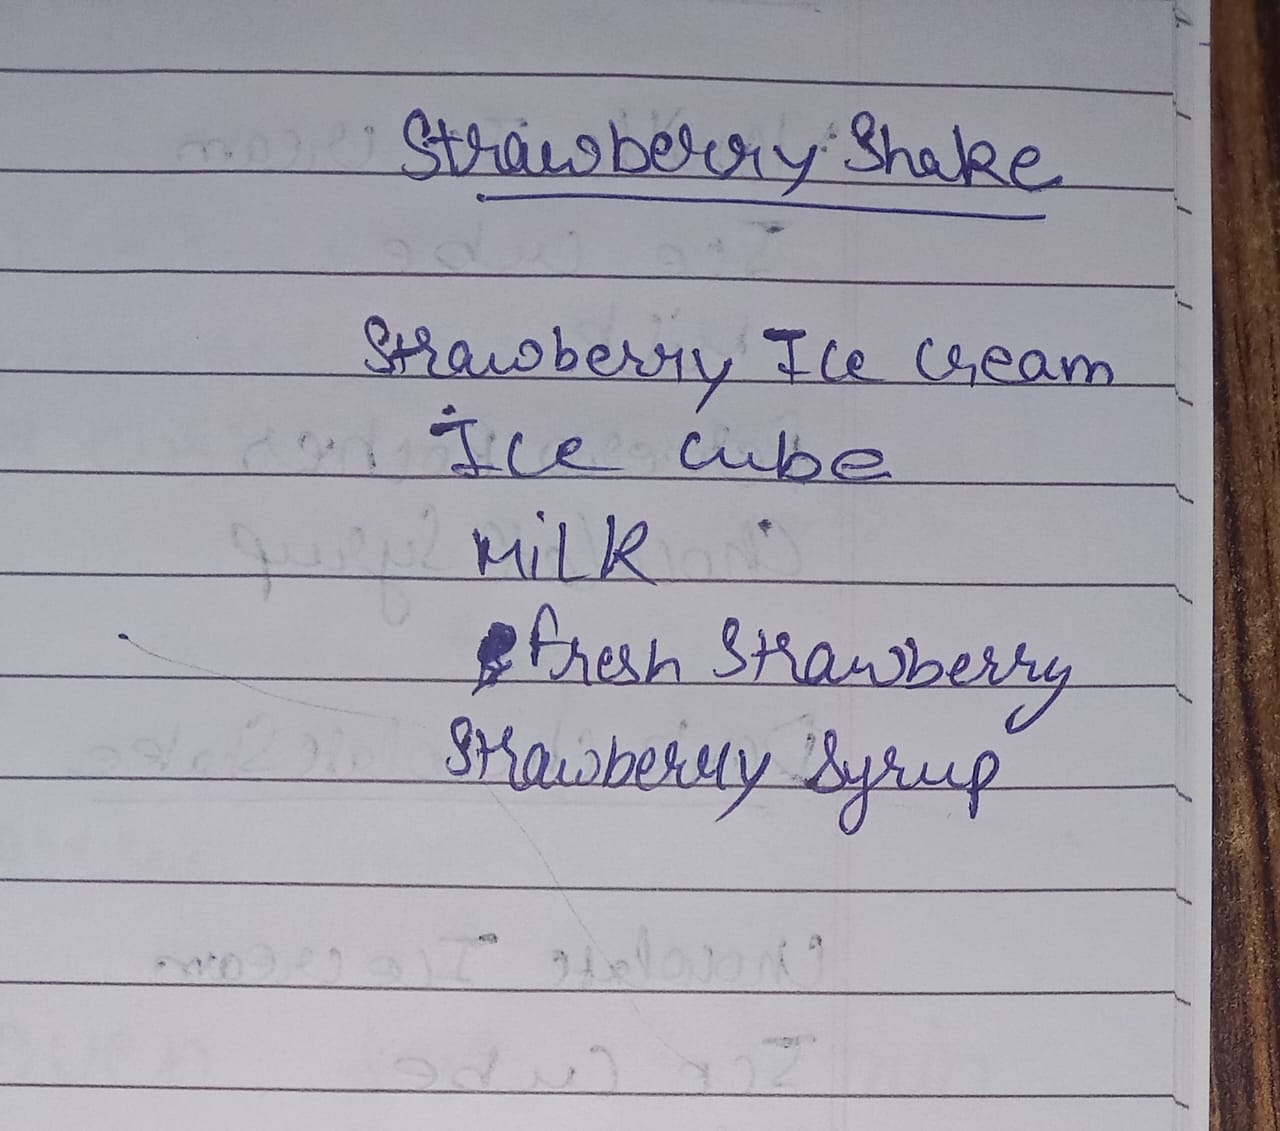 Strawberry Shake
Strawberry Ice Cream
Ice Cube
MiLK
fresh Strawberry
Strawberry Syrup